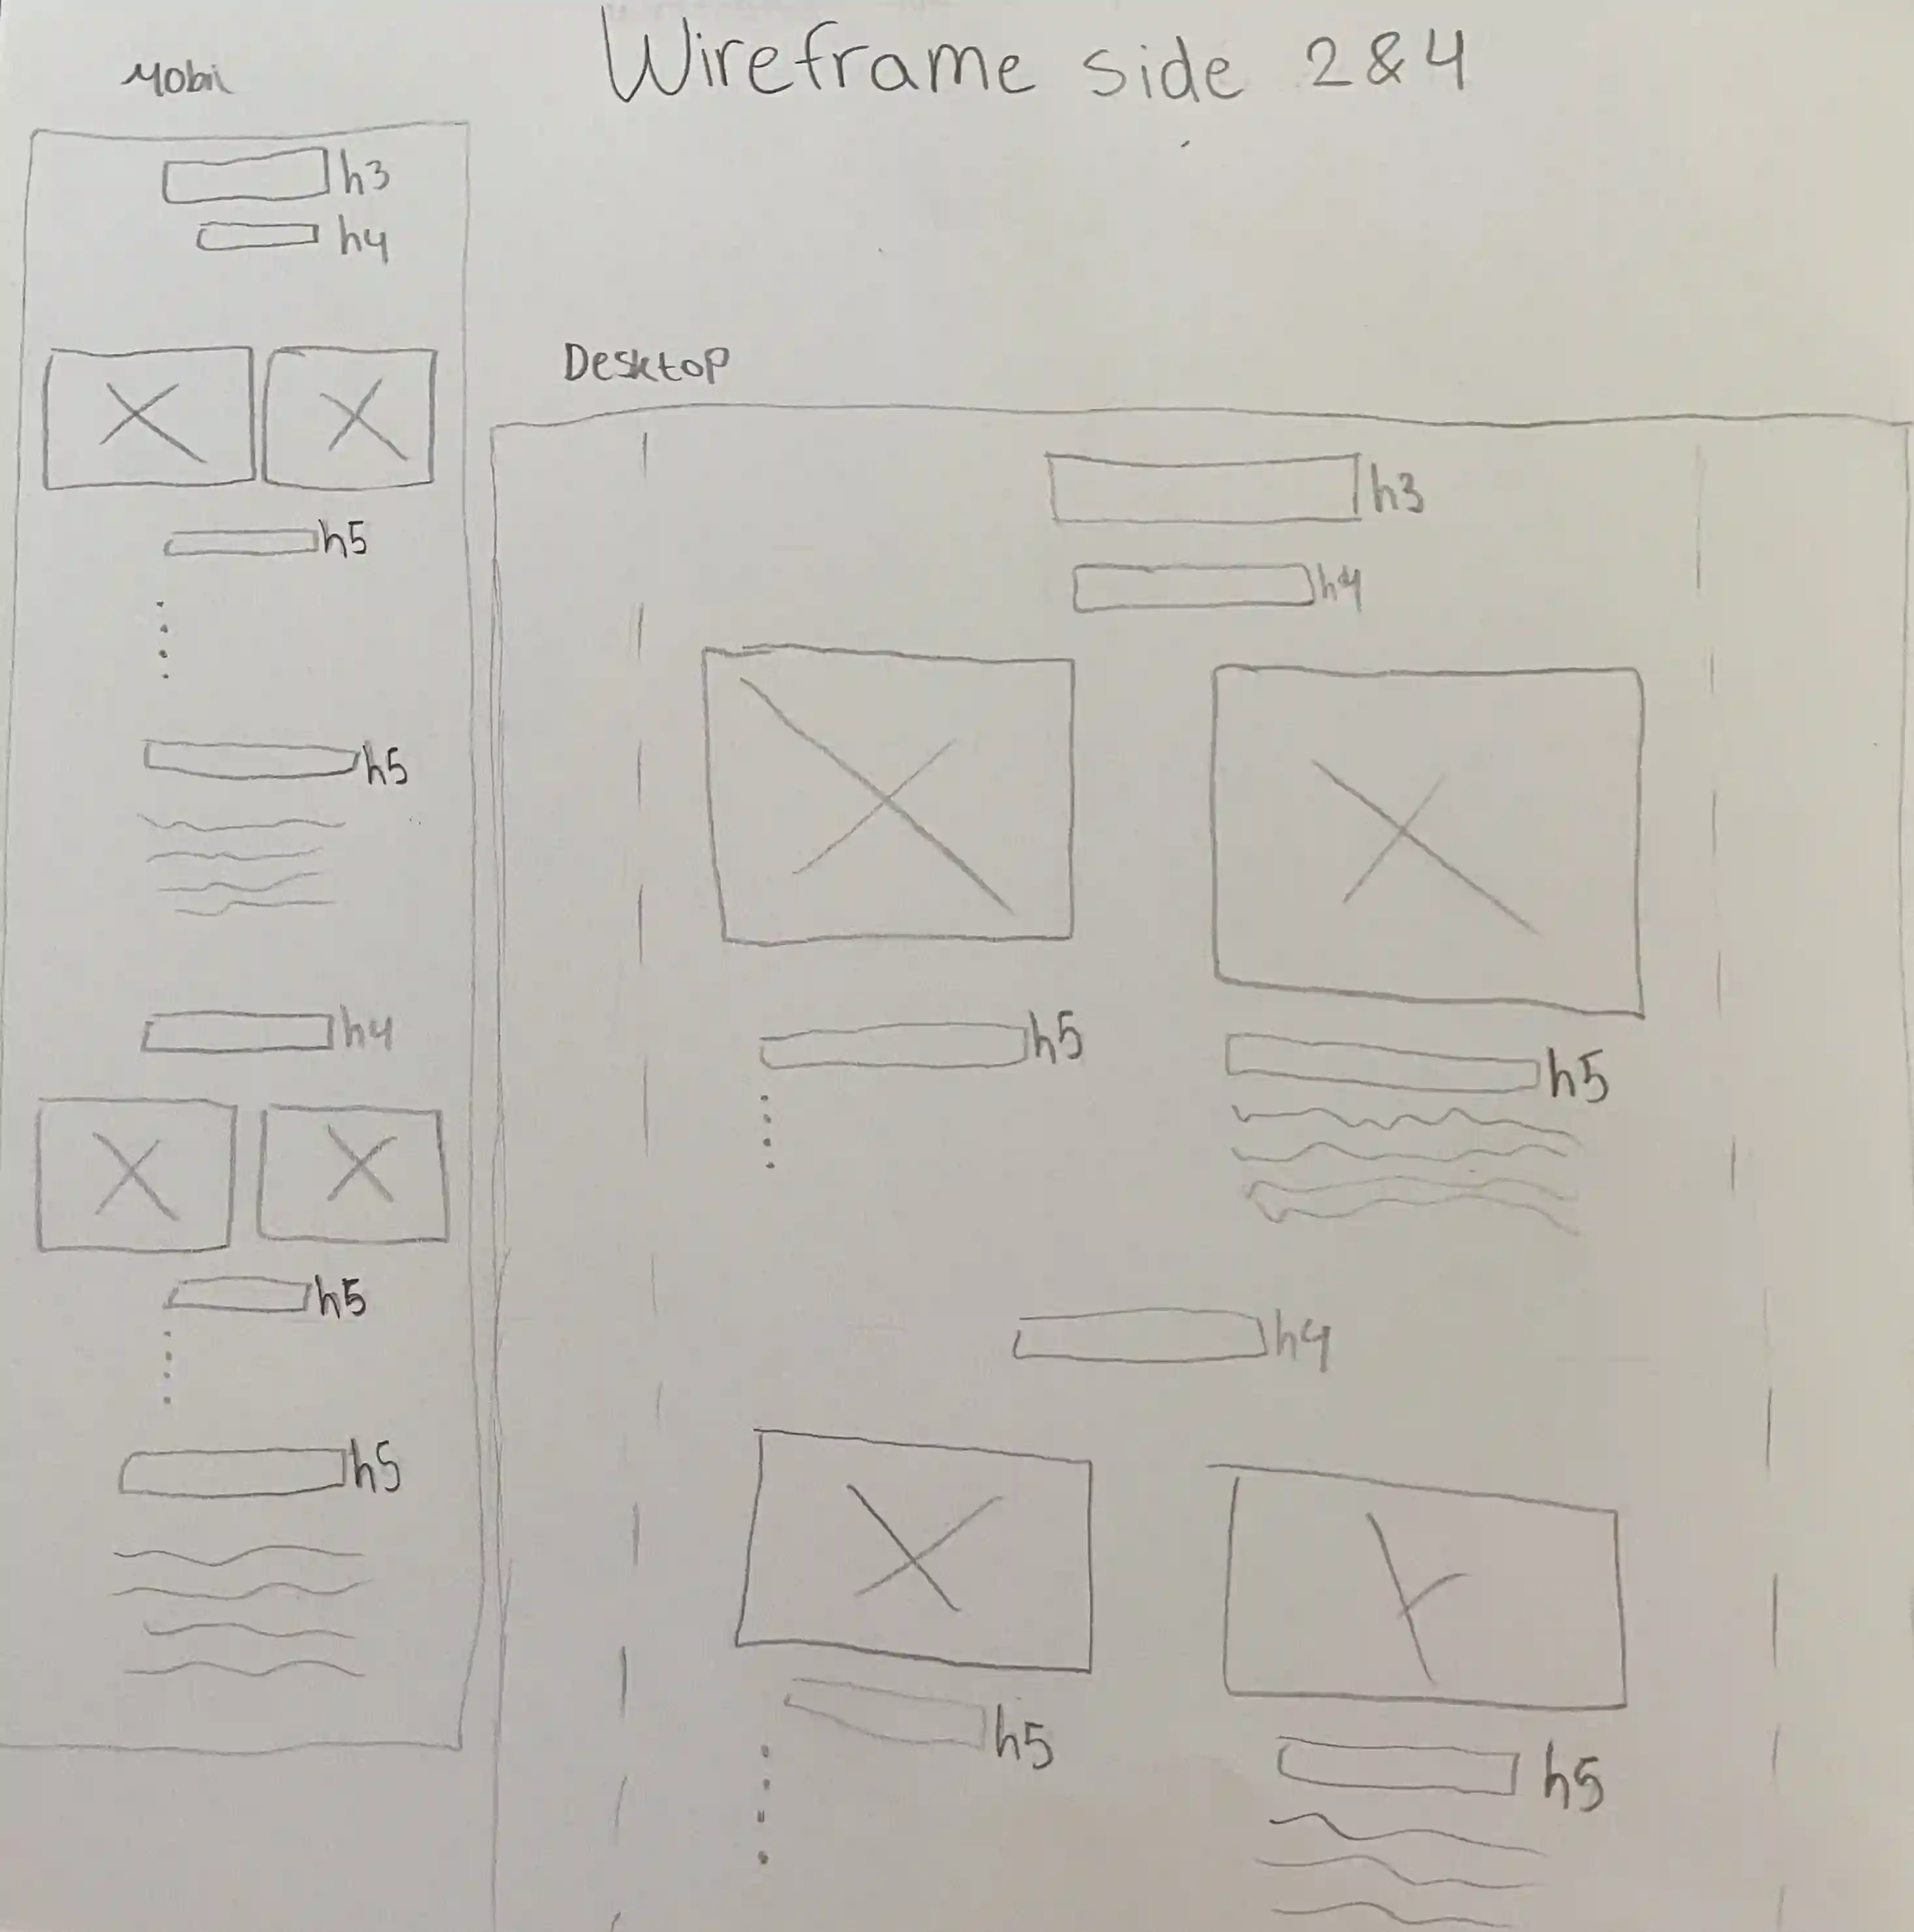 Wireframe side 2&4
Mobil
h3
h4
h5
h5
h4
h5
h5
Desktop
h3
h4
h5
h5
h4
h5
h5